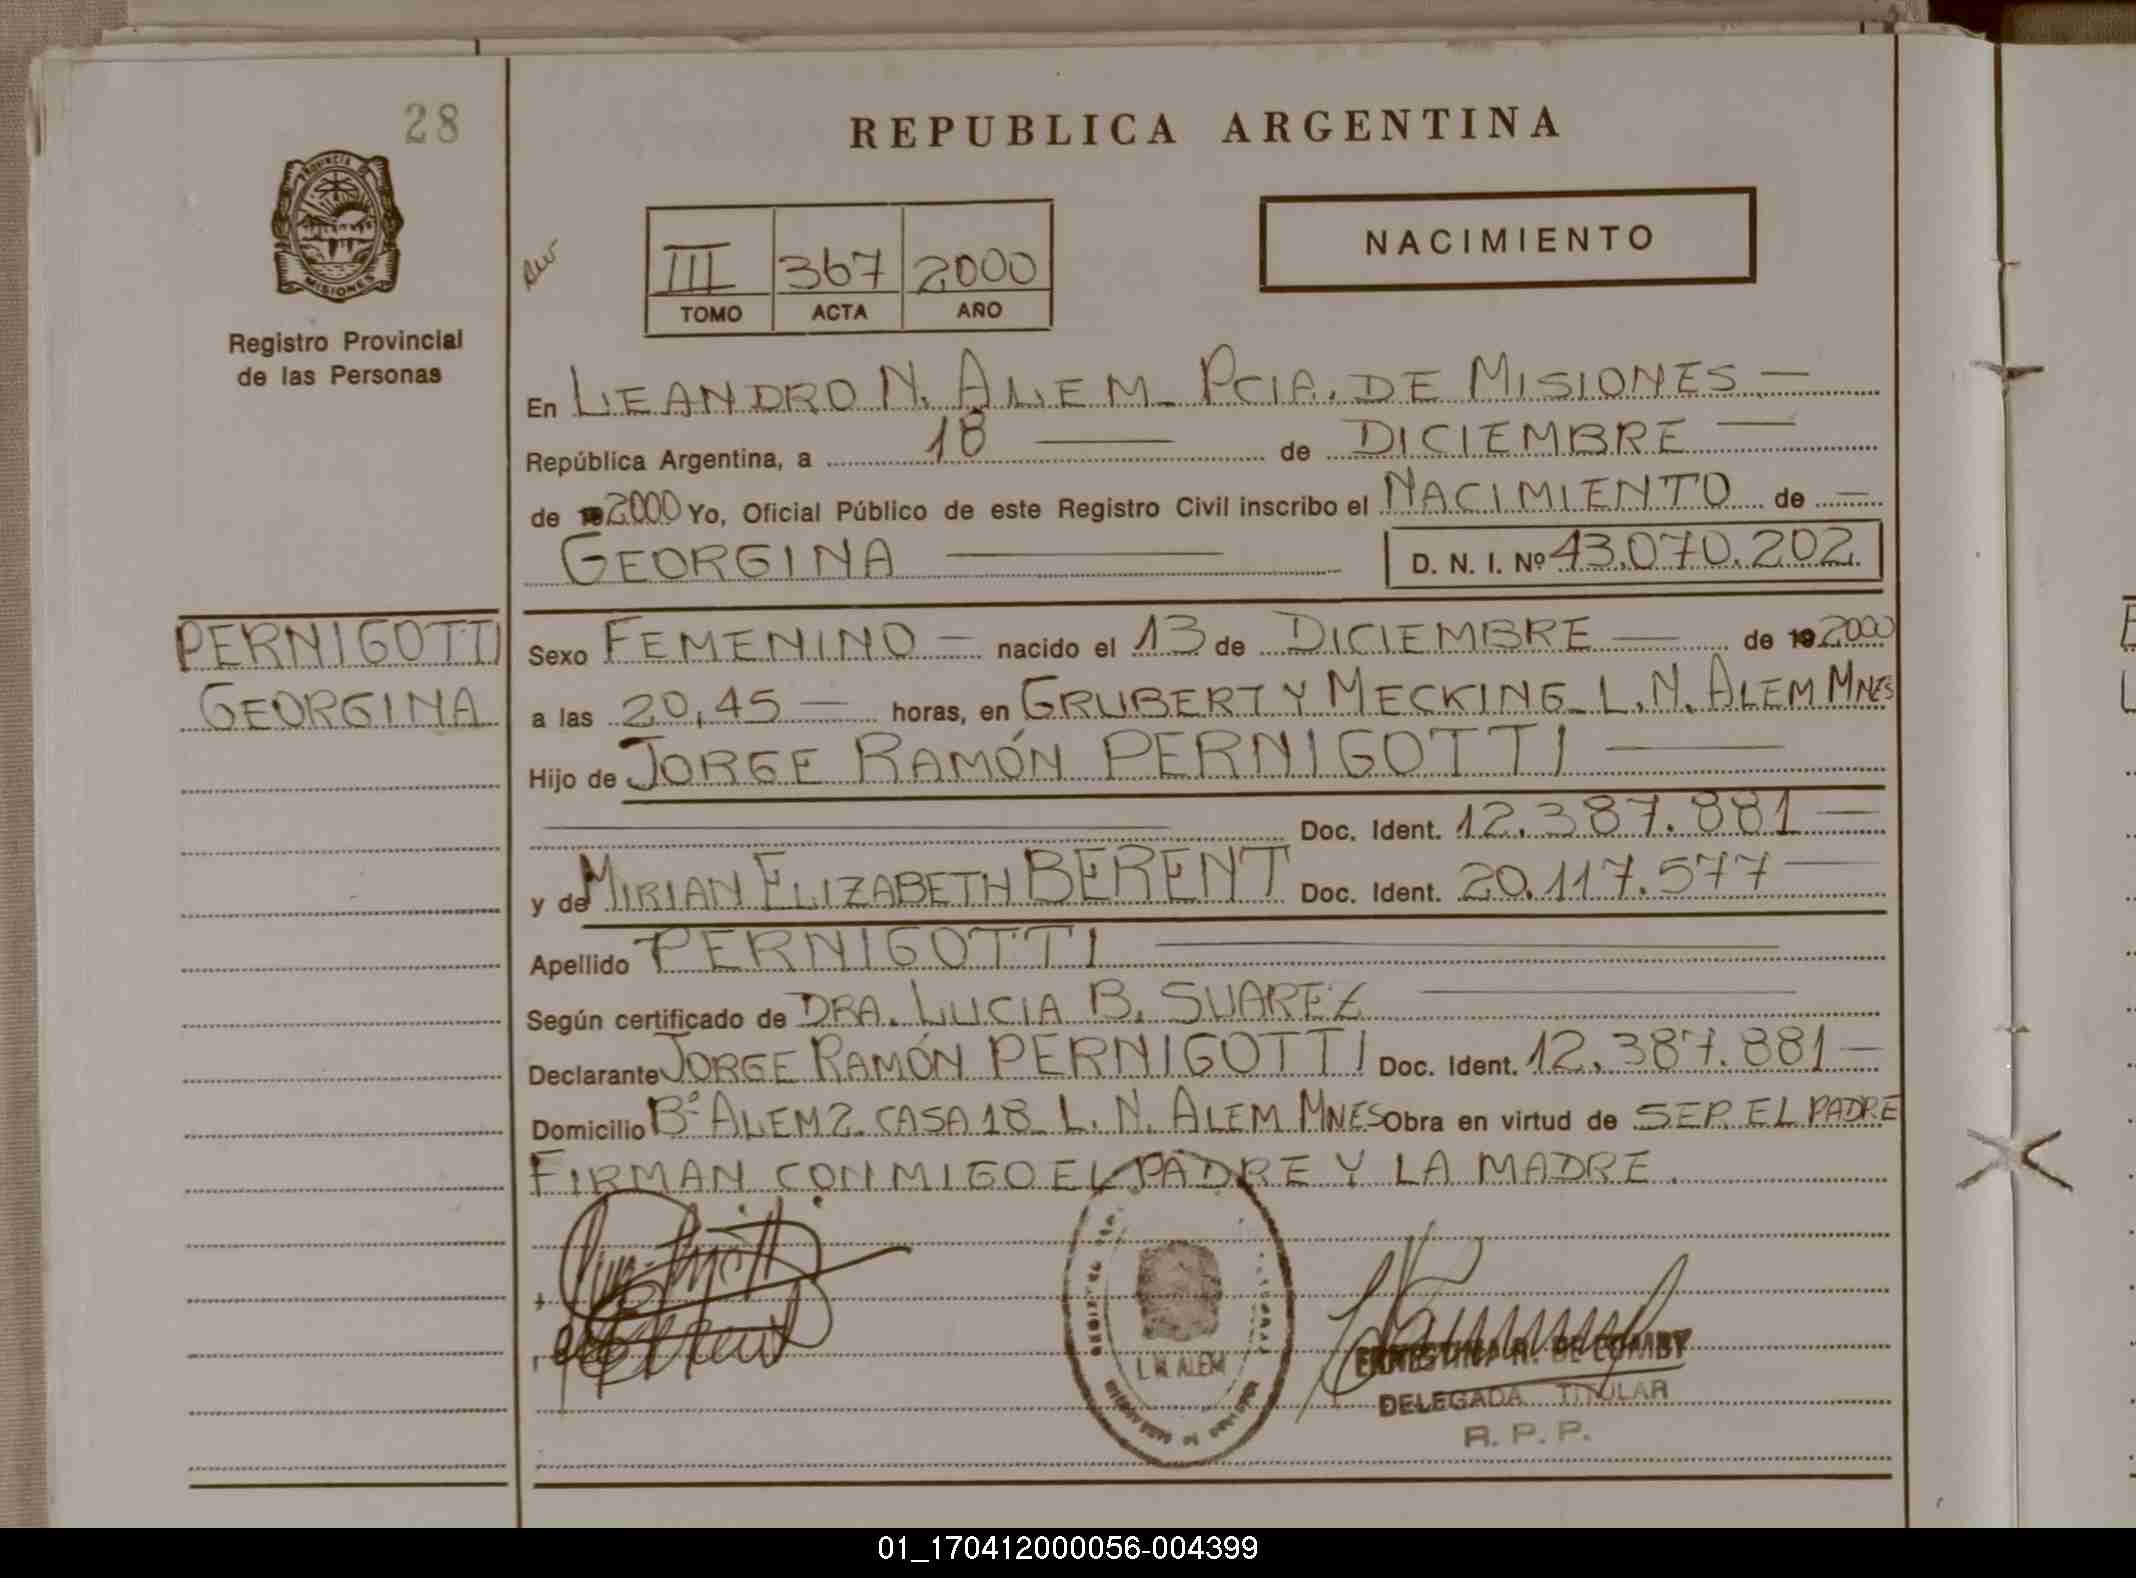 28
PROVINCIA DE
MISIONES
Registro Provincial
de las Personas
REPUBLICA ARGENTINA
NACIMIENTO
III 367 2000
TOMO ACTA AÑO
En LEANDRO N. ALEM_ PCIA. DE MISIONES —
República Argentina, a 18 — de DICIEMBRE —
de 19 2000 Yo, Oficial Público de este Registro Civil inscribo el NACIMIENTO de —
GEORGINA — D. N. I. Nº 43.070.202.
PERNIGOTTI
GEORGINA
Sexo FEMENINO — nacido el 13 de DICIEMBRE — de 19 2000
a las 20,45 — horas, en GRUBERT Y MECKING_ L. N. ALEM MNES
Hijo de JORGE RAMÓN PERNIGOTTI —
— Doc. Ident. 12.387.881 —
y de MIRIAN ELIZABETH BERENT Doc. Ident. 20.117.577 —
Apellido PERNIGOTTI —
Según certificado de DRA. LUCIA B. SUAREZ —
Declarante JORGE RAMÓN PERNIGOTTI Doc. Ident. 12.387.881 —
Domicilio Bº ALEM 2_ CASA 18_ L. N. ALEM MNES Obra en virtud de SER EL PADRE
FIRMAN CONMIGO EL PADRE Y LA MADRE.
L. N. ALEM
ERNESTINA R. DE COMBY
DELEGADA TITULAR
R. P. P.
01_170412000056-004399